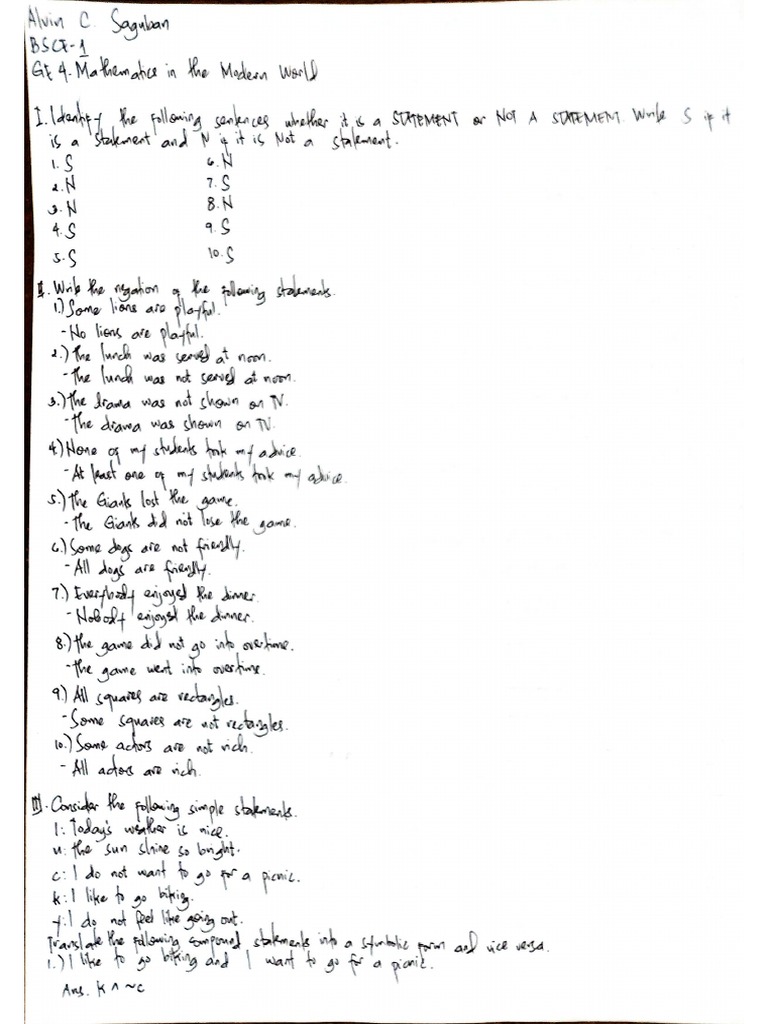 Alvin C. Saguban
BSCE-1
GE 4. Mathematics in the Modern World
I. Identify the following sentences whether it is a STATEMENT or NOT A STATEMENT. Write S if it
is a statement and N if it is Not a statement.
1. S
2. N
3. N
4. S
5. S
6. N
7. S
8. N
9. S
10. S
II. Write the negation of the following statements.
1.) Some lions are playful.
- No lions are playful.
2.) The lunch was served at noon.
- The lunch was not served at noon.
3.) The drama was not shown on TV.
- The drama was shown on TV.
4.) None of my students took my advice.
- At least one of my students took my advice.
5.) The Giants lost the game.
- The Giants did not lose the game.
6.) Some dogs are not friendly.
- All dogs are friendly.
7.) Everybody enjoyed the dinner.
- Nobody enjoyed the dinner.
8.) The game did not go into overtime.
- The game went into overtime.
9.) All squares are rectangles.
- Some squares are not rectangles.
10.) Some actors are not rich.
- All actors are rich.
III. Consider the following simple statements.
l: Today's weather is nice.
u: the sun shine so bright.
c: I do not want to go for a picnic.
k: I like to go biking.
y: I do not feel like going out.
Translate the following compound statements into a symbolic form and vice versa.
1.) I like to go biking and I want to go for a picnic.
Ans. k ∧ ~c